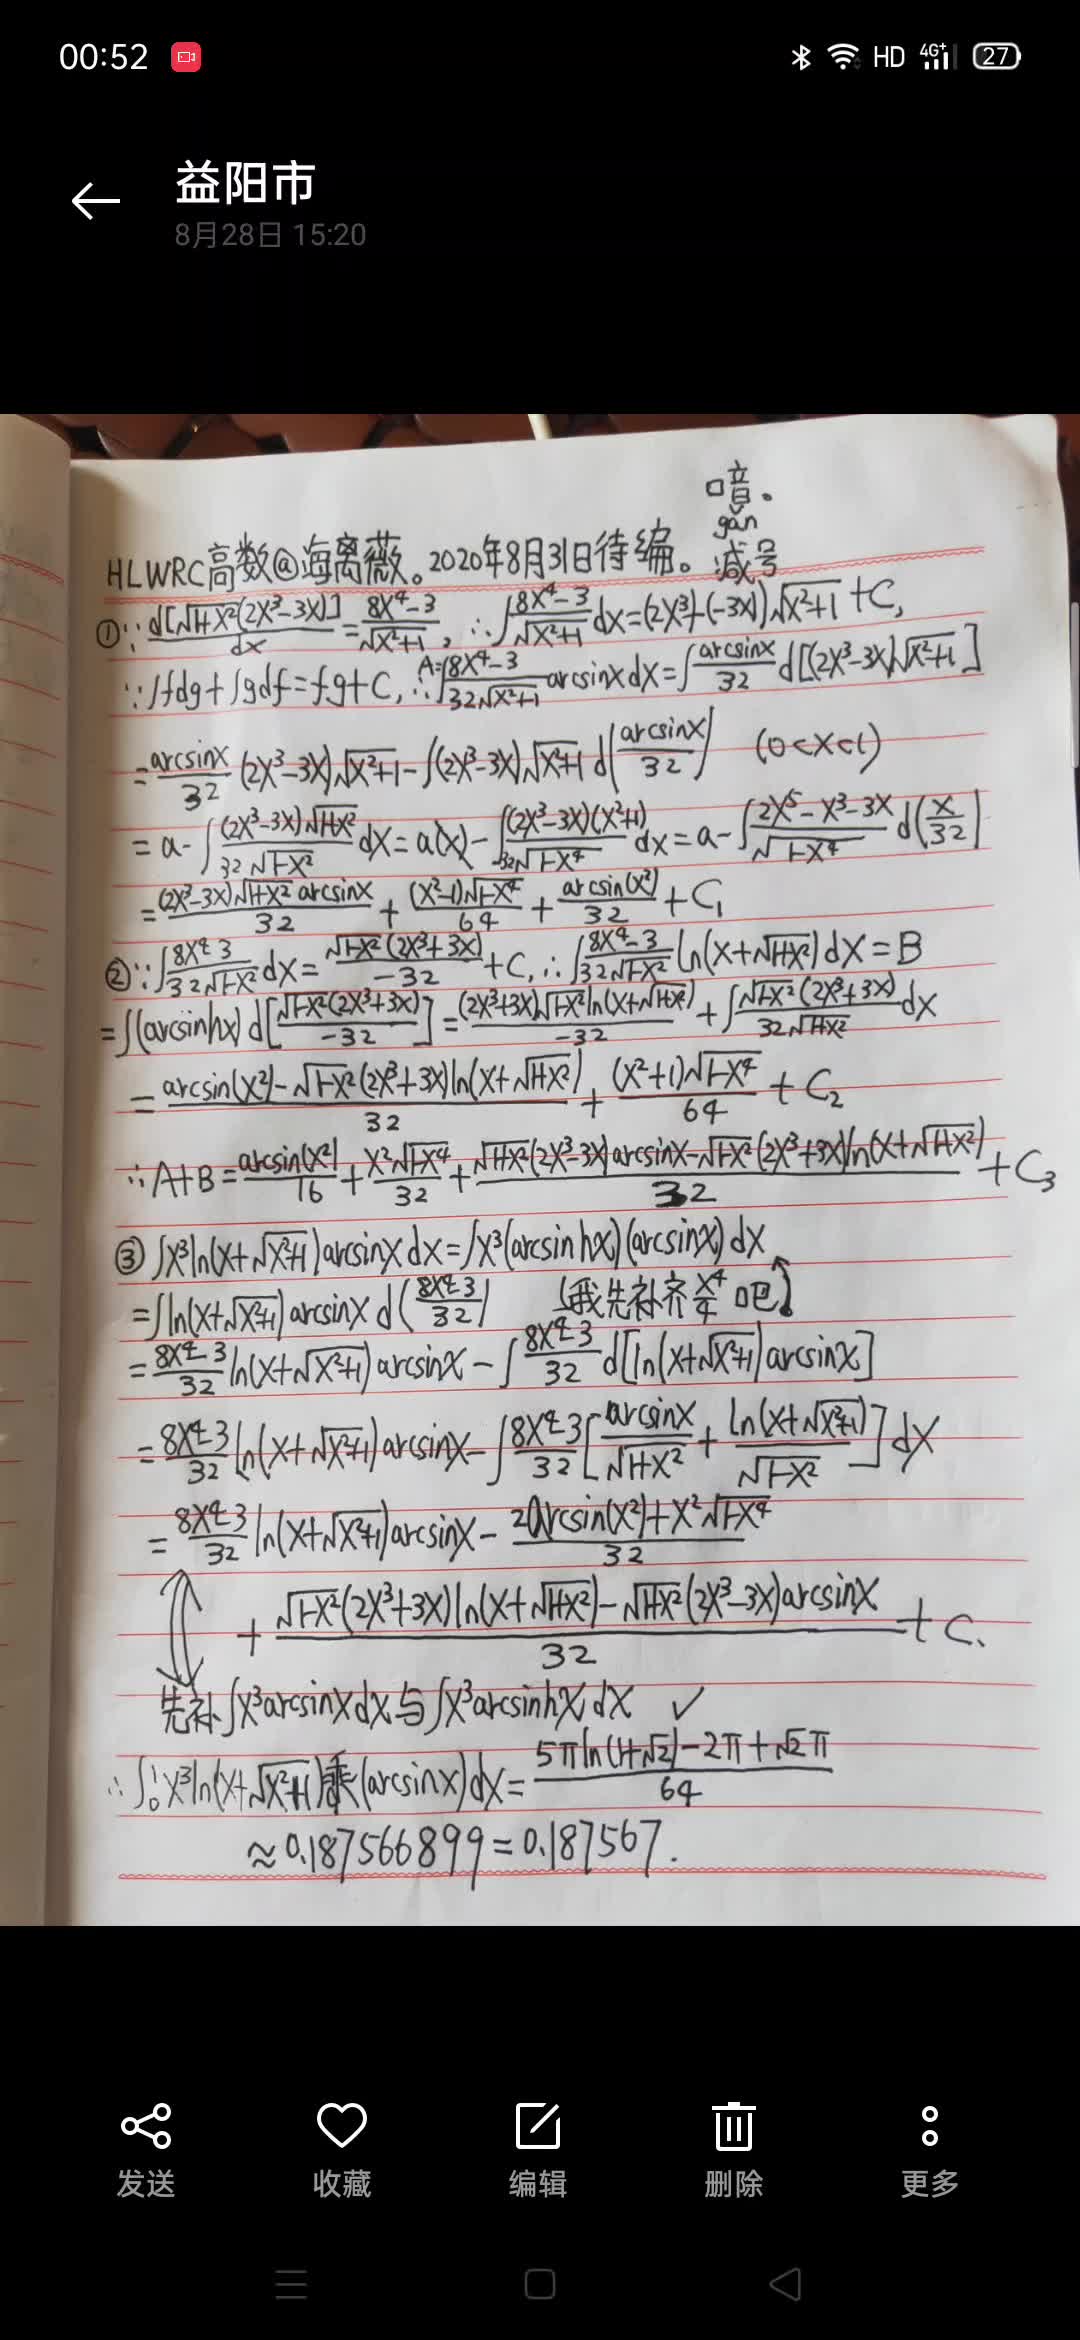 00:52
HD 4G+ 27
益阳市
8月28日 15:20
喑。
gǎn
HLWRC高数@海离薇。2020年8月31日待编。减号
①∵d[√(1+x²)(2x³-3x)]/dx=(8x⁴-3)/√(x²+1),∴∫(8x⁴-3)/√(x²+1)dx=(2x³+(-3x))√(x²+1)+C,
∵∫fdg+∫gdf=fg+C,∴A=∫(8x⁴-3)/(32√(x²+1))arcsinxdx=∫arcsinx/32 d[(2x³-3x)√(x²+1)]
=arcsinx/32(2x³-3x)√(x²+1)-∫(2x³-3x)√(x²+1)d(arcsinx/32) (0<x<1)
=a-∫(2x³-3x)√(1+x²)/(32√(1-x²))dx=a(x)-∫(2x³-3x)(x²+1)/(32√(1-x⁴))dx=a-∫(2x⁵-x³-3x)/√(1-x⁴)d(x/32)
=(2x³-3x)√(1+x²)arcsinx/32+(x²-1)√(1-x⁴)/64+arcsin(x²)/32+C₁
②∵∫(8x⁴-3)/(32√(1-x²))dx=√(1-x²)(2x³+3x)/-32+C,∴∫(8x⁴-3)/(32√(1-x²))ln(x+√(1+x²))dx=B
=∫(arcsinhx)d[√(1-x²)(2x³+3x)/-32]=(2x³+3x)√(1-x²)ln(x+√(1+x²))/-32+∫√(1-x²)(2x³+3x)/(32√(1+x²))dx
=(arcsin(x²)-√(1-x²)(2x³+3x)ln(x+√(1+x²)))/32+(x²+1)√(1-x⁴)/64+C₂
∴A+B=arcsin(x²)/16+x²√(1-x⁴)/32+(√(1+x²)(2x³-3x)arcsinx-√(1-x²)(2x³+3x)ln(x+√(1+x²)))/32+C₃
③∫x³ln(x+√(x²+1))arcsinxdx=∫x³(arcsinhx)(arcsinx)dx
=∫ln(x+√(x²+1))arcsinx d((8x⁴-3)/32) (我先补齐x⁴/4吧)
=(8x⁴-3)/32 ln(x+√(x²+1))arcsinx-∫(8x⁴-3)/32 d[ln(x+√(x²+1))arcsinx]
=(8x⁴-3)/32 ln(x+√(x²+1))arcsinx-∫(8x⁴-3)/32[arcsinx/√(1+x²)+ln(x+√(x²+1))/√(1-x²)]dx
=(8x⁴-3)/32 ln(x+√(x²+1))arcsinx-(2arcsin(x²)+x²√(1-x⁴))/32
+(√(1-x²)(2x³+3x)ln(x+√(1+x²))-√(1+x²)(2x³-3x)arcsinx)/32+C.
先补∫x³arcsinxdx与∫x³arcsinhxdx ✓
∴∫₀¹x³ln(x+√(x²+1))乘(arcsinx)dx=(5πln(1+√2)-2π+√2π)/64
≈0.187566899=0.187567.
发送 收藏 编辑 删除 更多